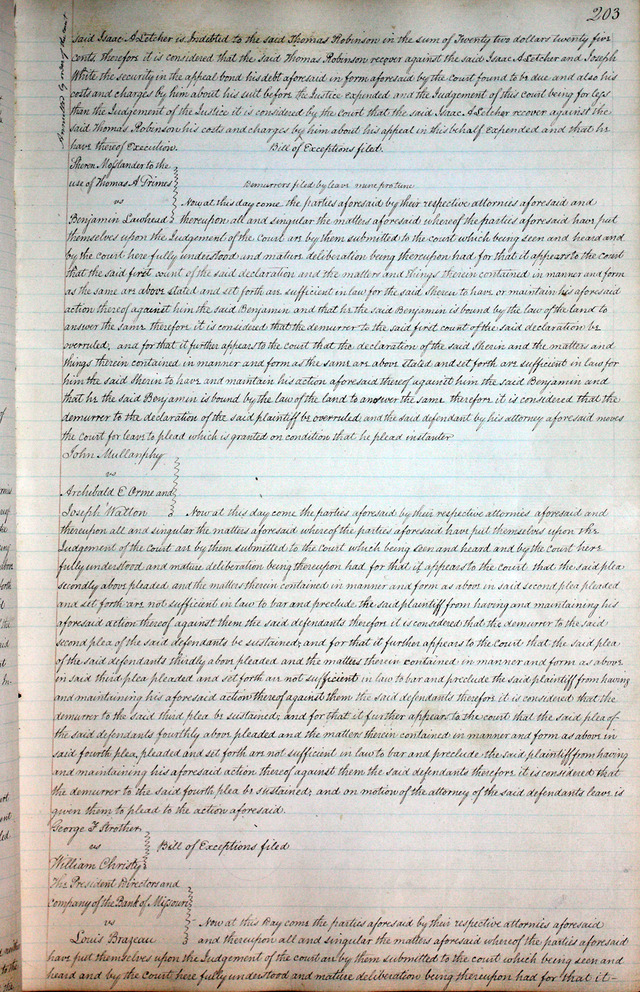 203
said Isaac A Letcher is Indebted to the said Thomas Robinson in the sum of Twenty two dollars twenty five
cents, therefore it is considered that the said Thomas Robinson recover against the said Isaac A Letcher and Joseph
White the security in the appeal bond his debt aforesaid in form aforesaid by the Court found to be due and also his
costs and charges by him about his suit before the Justice expended and the Judgement of this court being for less
than the Judgement of the Justice it is considered by the court that the said Isaac A Letcher recover against the
said Thomas Robinson his costs and charges by him about his appeal in this behalf expended and that he
have thereof Execution. Bill of Exceptions filed.
to the
use of Thomas A Grimes Demurrers filed by leave nunc pro tunc
vs Now at this day come the parties aforesaid by their respective attornies aforesaid and
Benjamin Lawhead thereupon all and singular the matters aforesaid whereof the parties aforesaid have put
themselves upon the Judgement of the Court are by them submitted to the court which being seen and heard and
by the court here fully understood and mature deliberation being thereupon had for that it appears to the Court
that the said first count of the said declaration and the matters and things therein contained in manner and form
as the same are above stated and set forth are sufficient in law for the said to have or maintain his aforesaid
action thereof against him the said Benjamin and that he the said Benjamin is bound by the law of the land to
answer the same therefore it is considered that the demurrer to the said first count of the said declaration be
overruled, and for that it further appears to the court that the declaration of the said and the matters and
things therein contained in manner and form as the same are above stated and set forth are sufficient in law for
him the said to have and maintain his action aforesaid thereof against him the said Benjamin and
that he the said Benjamin is bound by the law of the land to answer the same therefore it is considered that the
demurrer to the declaration of the said plaintiff be overruled, and the said defendant by his attorney aforesaid moves
the court for leave to plead which is granted on condition that he plead instanter
John Mullanphy
vs
Archibald E Orme and
Joseph Walton Now at this day come the parties aforesaid by their respective attornies aforesaid and
thereupon all and singular the matters aforesaid whereof the parties aforesaid have put themselves upon the
Judgement of the court are by them submitted to the court which being seen and heard and by the court here
fully understood and mature deliberation being thereupon had for that it appears to the court that the said plea
secondly above pleaded and the matters therein contained in manner and form as above in said second plea pleaded
and set forth are not sufficient in law to bar and preclude the said plaintiff from having and maintaining his
aforesaid action thereof against them the said defendants therefore it is considered that the demurrer to the said
second plea of the said defendants be sustained, and for that it further appears to the Court that the said plea
of the said defendants thirdly above pleaded and the matters therein contained in manner and form as above
in said third plea pleaded and set forth are not sufficient in law to bar and preclude the said plaintiff from having
and maintaining his aforesaid action thereof against them the said defendants therefore it is considered that the
demurrer to the said third plea be sustained, and for that it further appears to the court that the said plea of
the said defendants fourthly above pleaded and the matters therein contained in manner and form as above in
said fourth plea, pleaded and set forth are not sufficient in law to bar and preclude the said plaintiff from having
and maintaining his aforesaid action thereof against them the said defendants therefore it is considered that
the demurrer to the said fourth plea be sustained, and on motion of the attorney of the said defendants leave is
given them to plead to the action aforesaid.
George F Strother
vs Bill of Exceptions filed
William Christy
The President Directors and
company of the Bank of Missouri
vs Now at this Day come the parties aforesaid by their respective attornies aforesaid
Louis Brazeau and thereupon all and singular the matters aforesaid whereof the parties aforesaid
have put themselves upon the Judgement of the court are by them submitted to the court which being seen and
heard and by the Court here fully understood and mature deliberation being thereupon had for that it